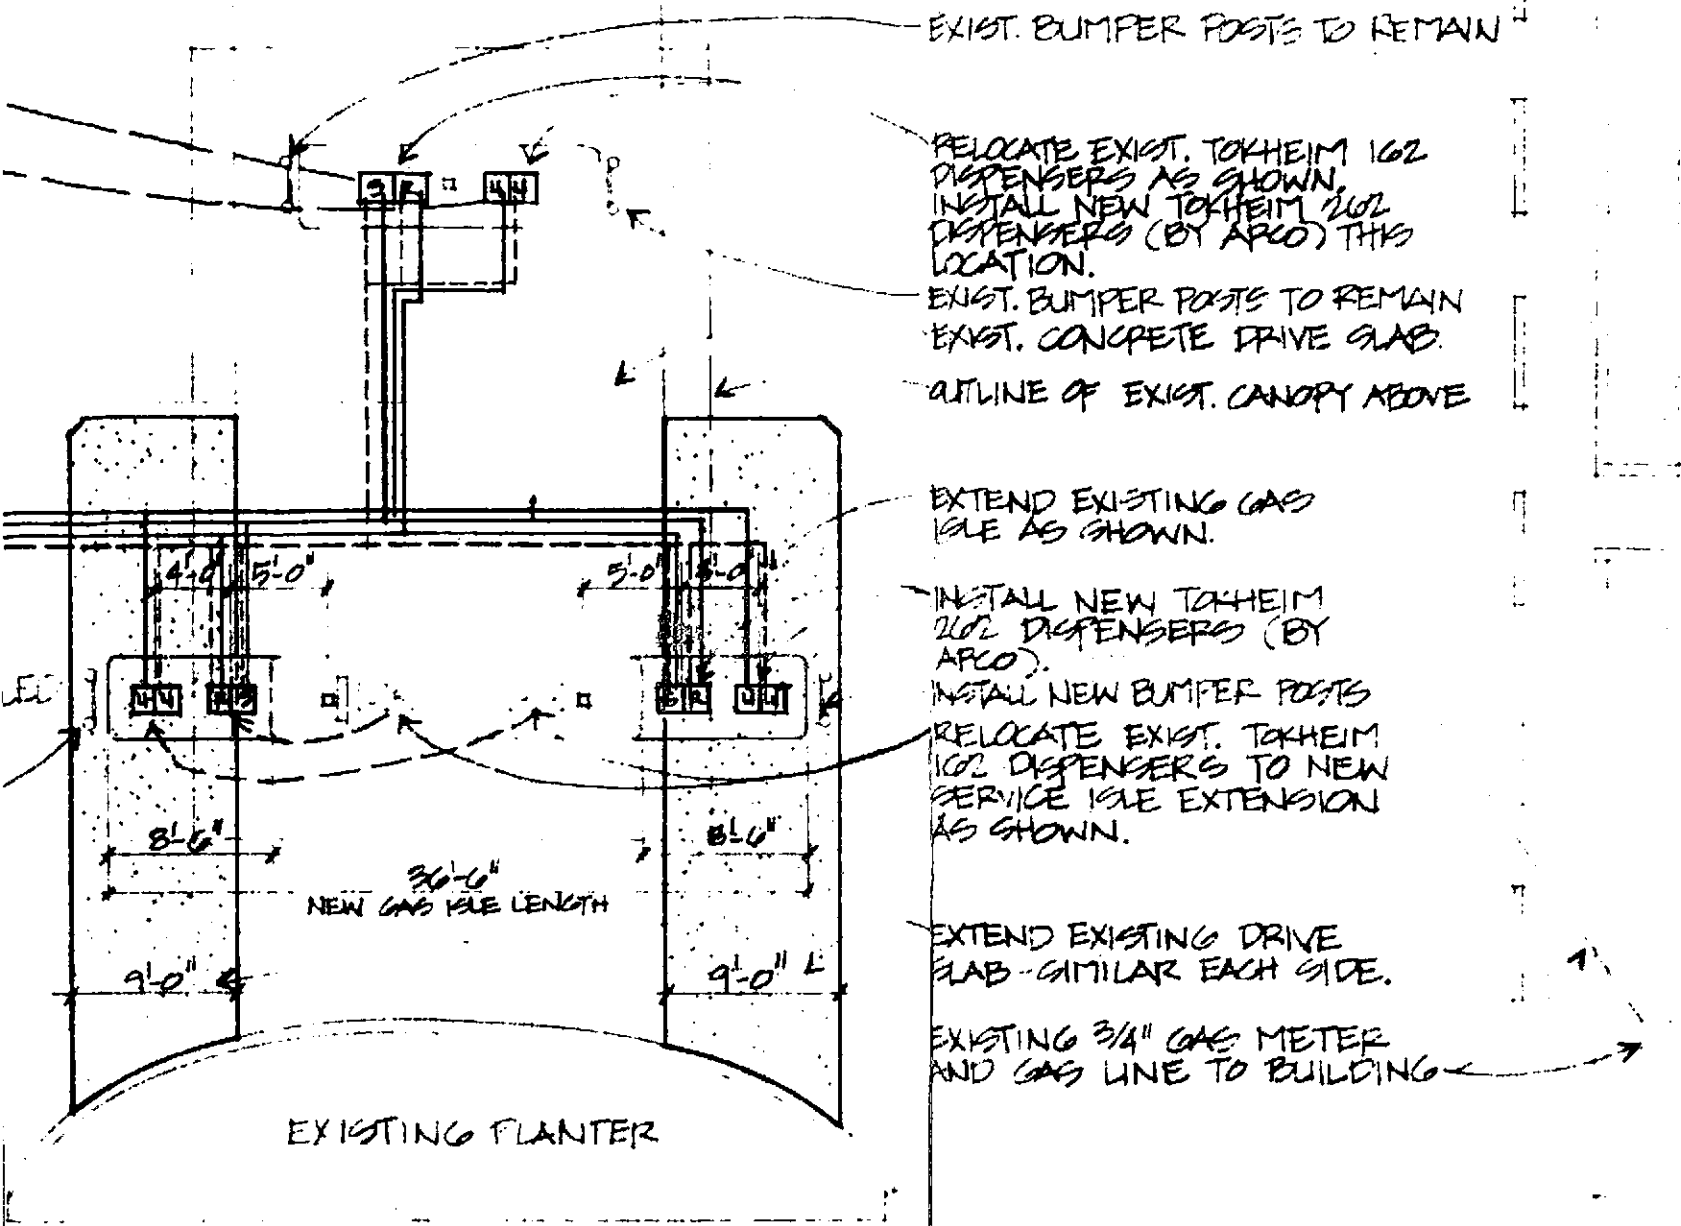 EXIST. BUMPER POSTS TO REMAIN
RELOCATE EXIST. TOKHEIM 162
DISPENSERS AS SHOWN.
INSTALL NEW TOKHEIM 262
DISPENSERS (BY ARCO) THIS
LOCATION.
EXIST. BUMPER POSTS TO REMAIN
EXIST. CONCRETE DRIVE SLAB.
OUTLINE OF EXIST. CANOPY ABOVE
EXTEND EXISTING GAS
ISLE AS SHOWN.
INSTALL NEW TOKHEIM
262 DISPENSERS (BY
ARCO).
INSTALL NEW BUMPER POSTS
RELOCATE EXIST. TOKHEIM
162 DISPENSERS TO NEW
SERVICE ISLE EXTENSION
AS SHOWN.
EXTEND EXISTING DRIVE
SLAB - SIMILAR EACH SIDE.
EXISTING 3/4" GAS METER
AND GAS LINE TO BUILDING
4'-0" 5'-0" 5'-0"
8'-6" 8'-6"
36'-6"
NEW GAS ISLE LENGTH
9'-0" 9'-0"
EXISTING PLANTER